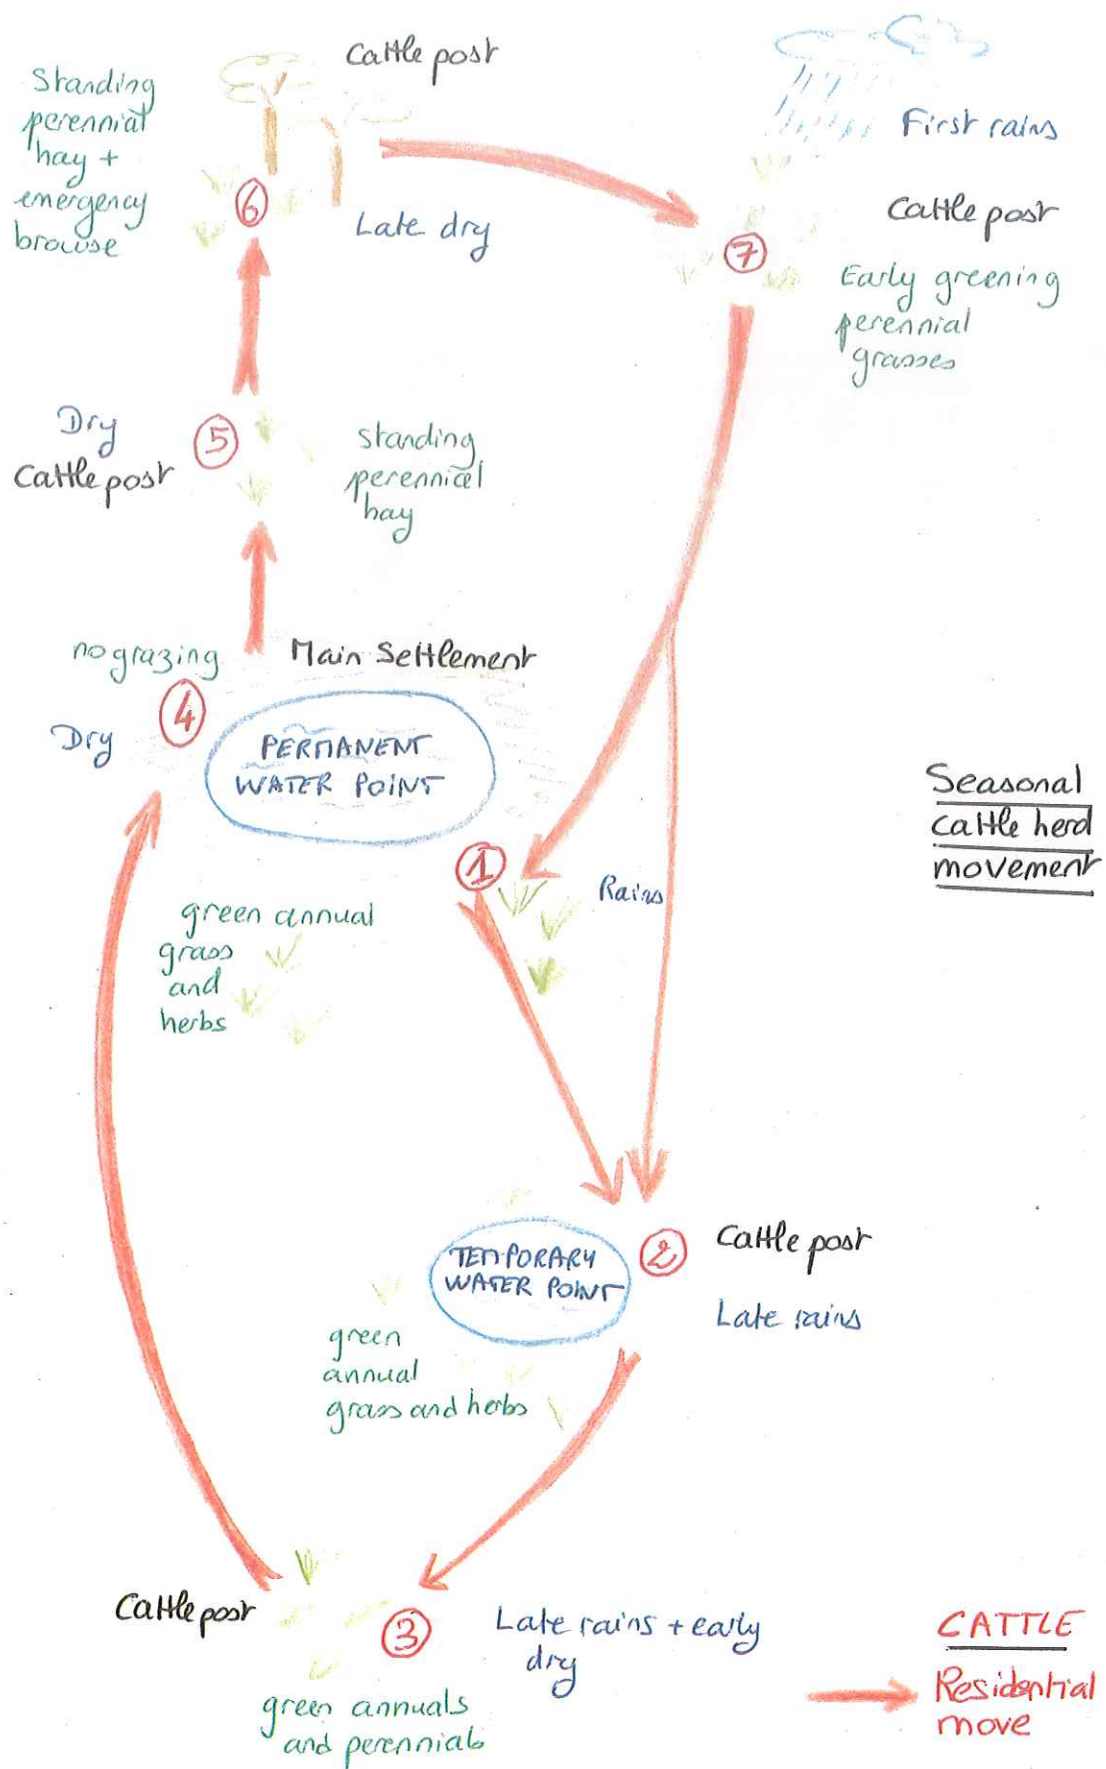 Cattle post
Standing
perennial
hay +
emergency
browse
6
Late dry
First rains
Cattle post
7
Early greening
perennial
grasses
Dry
Cattle post
5
Standing
perennial
hay
no grazing
Main Settlement
4
Dry
PERMANENT
WATER POINT
Seasonal
cattle herd
movement
1
Rains
green annual
grass
and
herbs
TEMPORARY
WATER POINT
2
Cattle post
Late rains
green
annual
grass and herbs
Cattle post
3
Late rains + early
dry
green annuals
and perennials
CATTLE
Residential
move